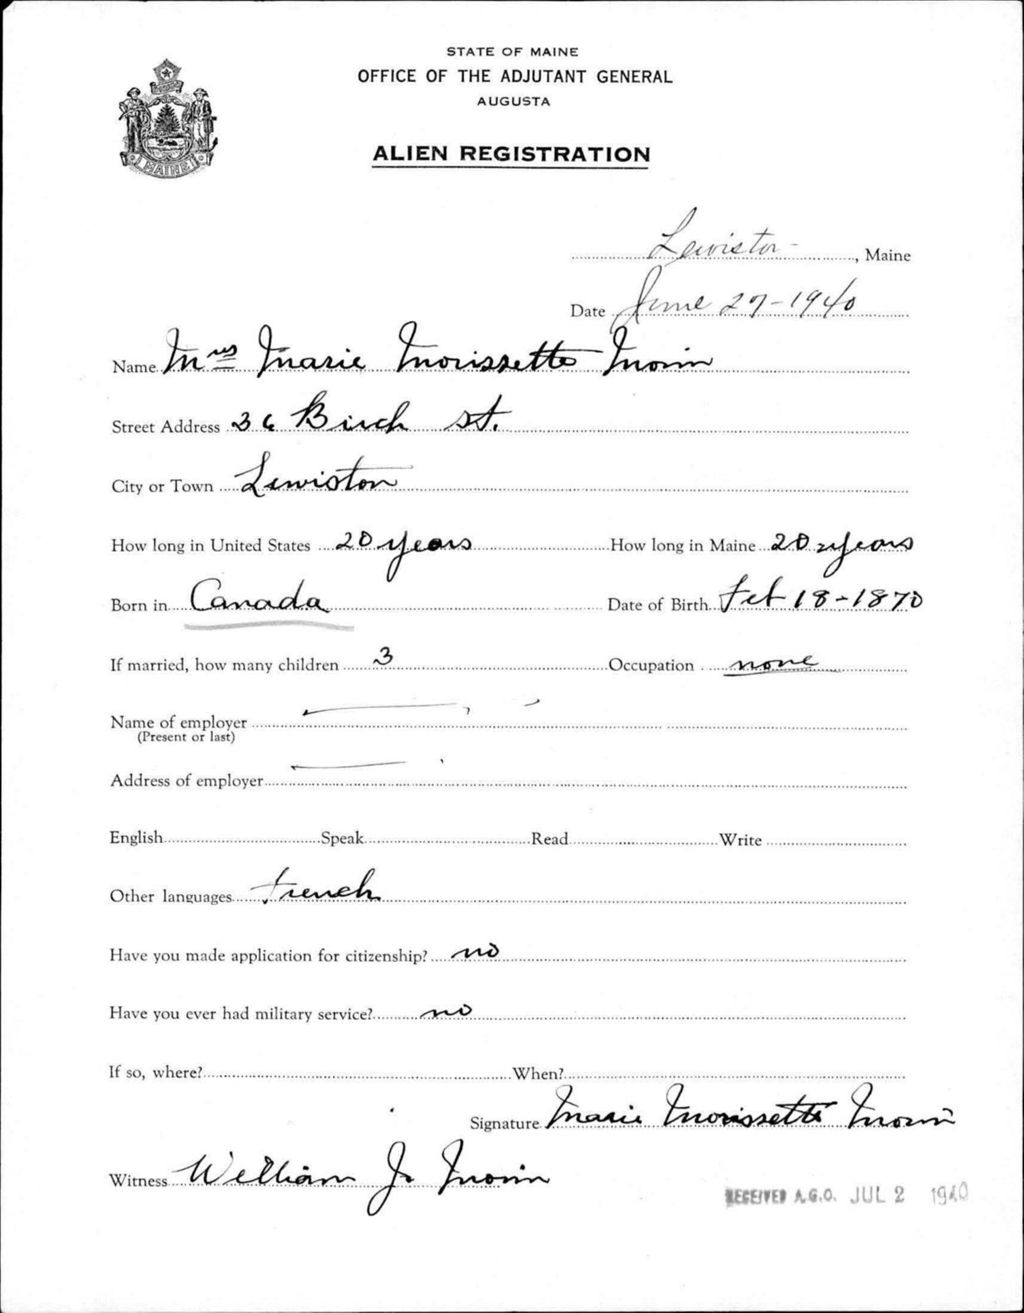 STATE OF MAINE
OFFICE OF THE ADJUTANT GENERAL
AUGUSTA
ALIEN REGISTRATION
MAINE
Lewiston - , Maine
Date June 27-1940
Name Mrs Marie Morissette Morin
Street Address 36 Birch St.
City or Town Lewiston
How long in United States 20 years How long in Maine 20 years
Born in Canada Date of Birth Feb 18-1870
If married, how many children 3 Occupation none
Name of employer
(Present or last)
Address of employer
English Speak Read Write
Other languages French
Have you made application for citizenship? no
Have you ever had military service? no
If so, where? When?
Signature Marie Morissette Morin
Witness William J. Morin
RECEIVED A.G.O. JUL 2 1940